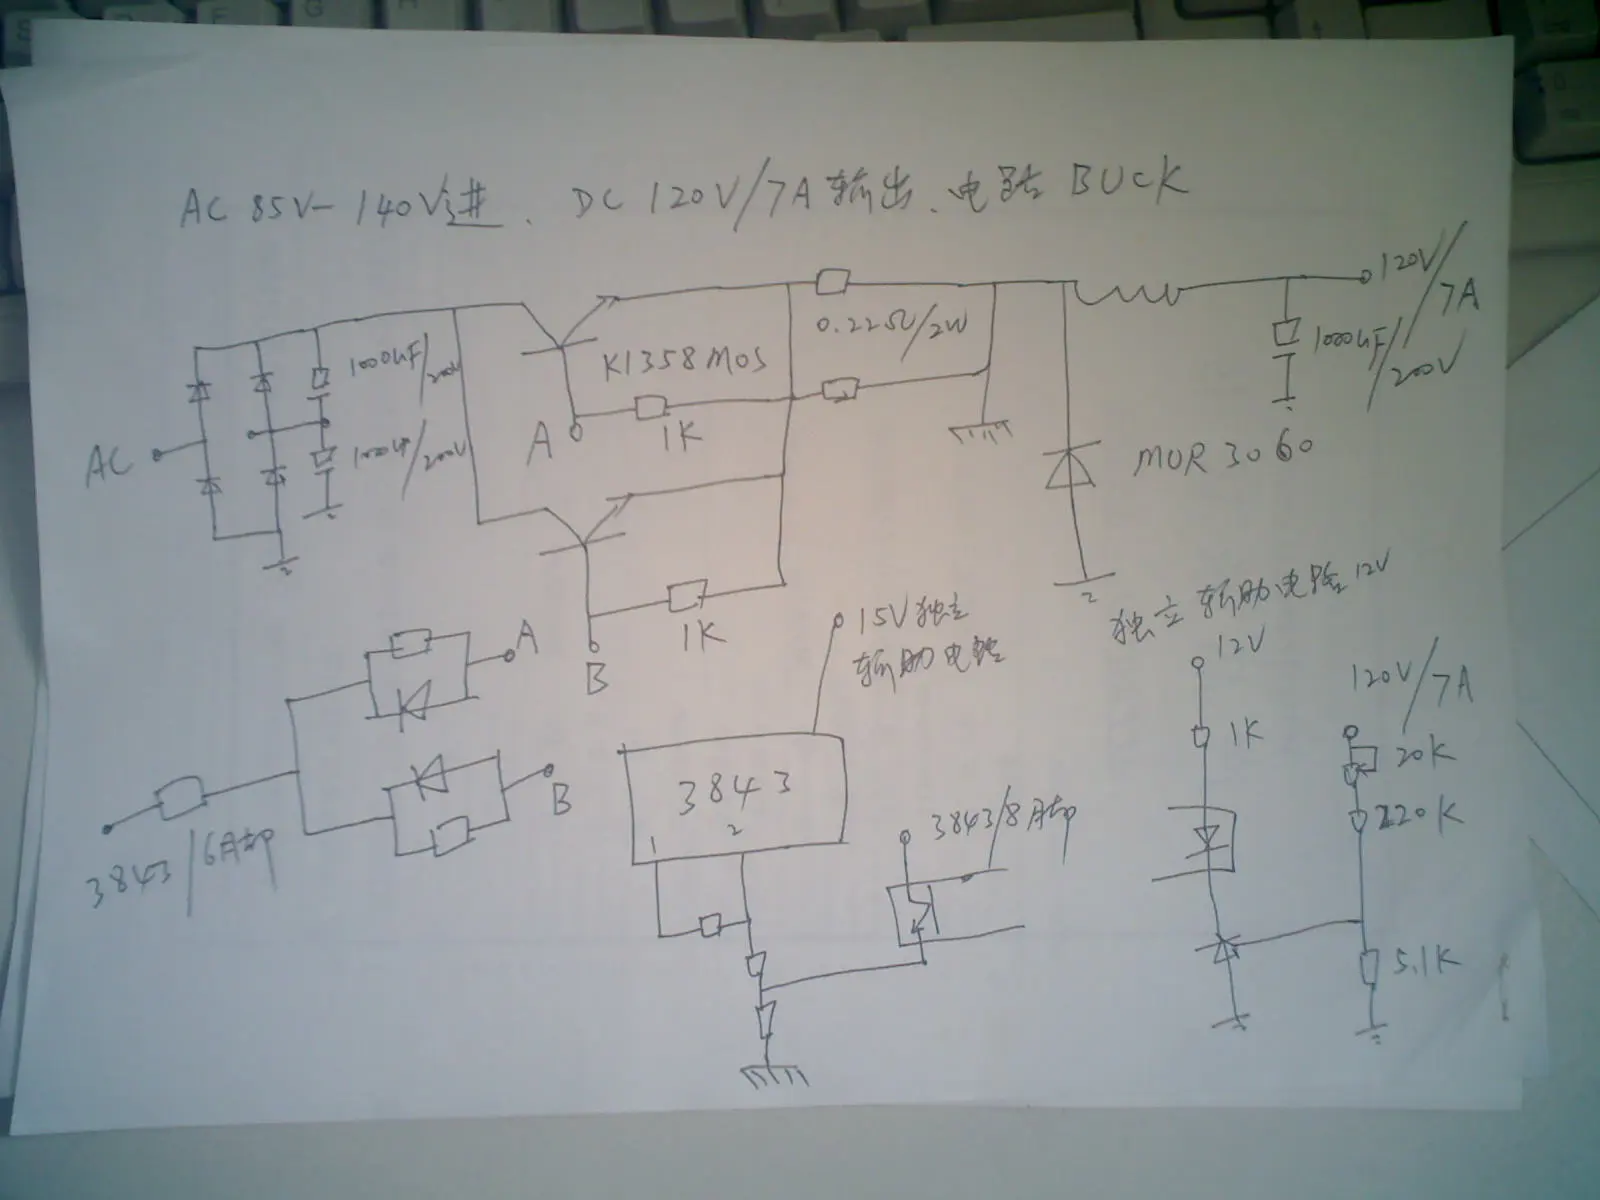 AC 85V-140V进. DC 120V/7A输出. 电路 BUCK
120V/7A
1000uF/200V
0.22Ω/2W
1000uF/200V
K1358 MOS
A
1K
AC
1000uF/200V
MUR 3060
1K
B
15V独立
辅助电路
独立辅助电路12V
12V
120V/7A
A
1K
20K
3843
1
2
3843/8脚
220K
B
3843/6脚
5.1K